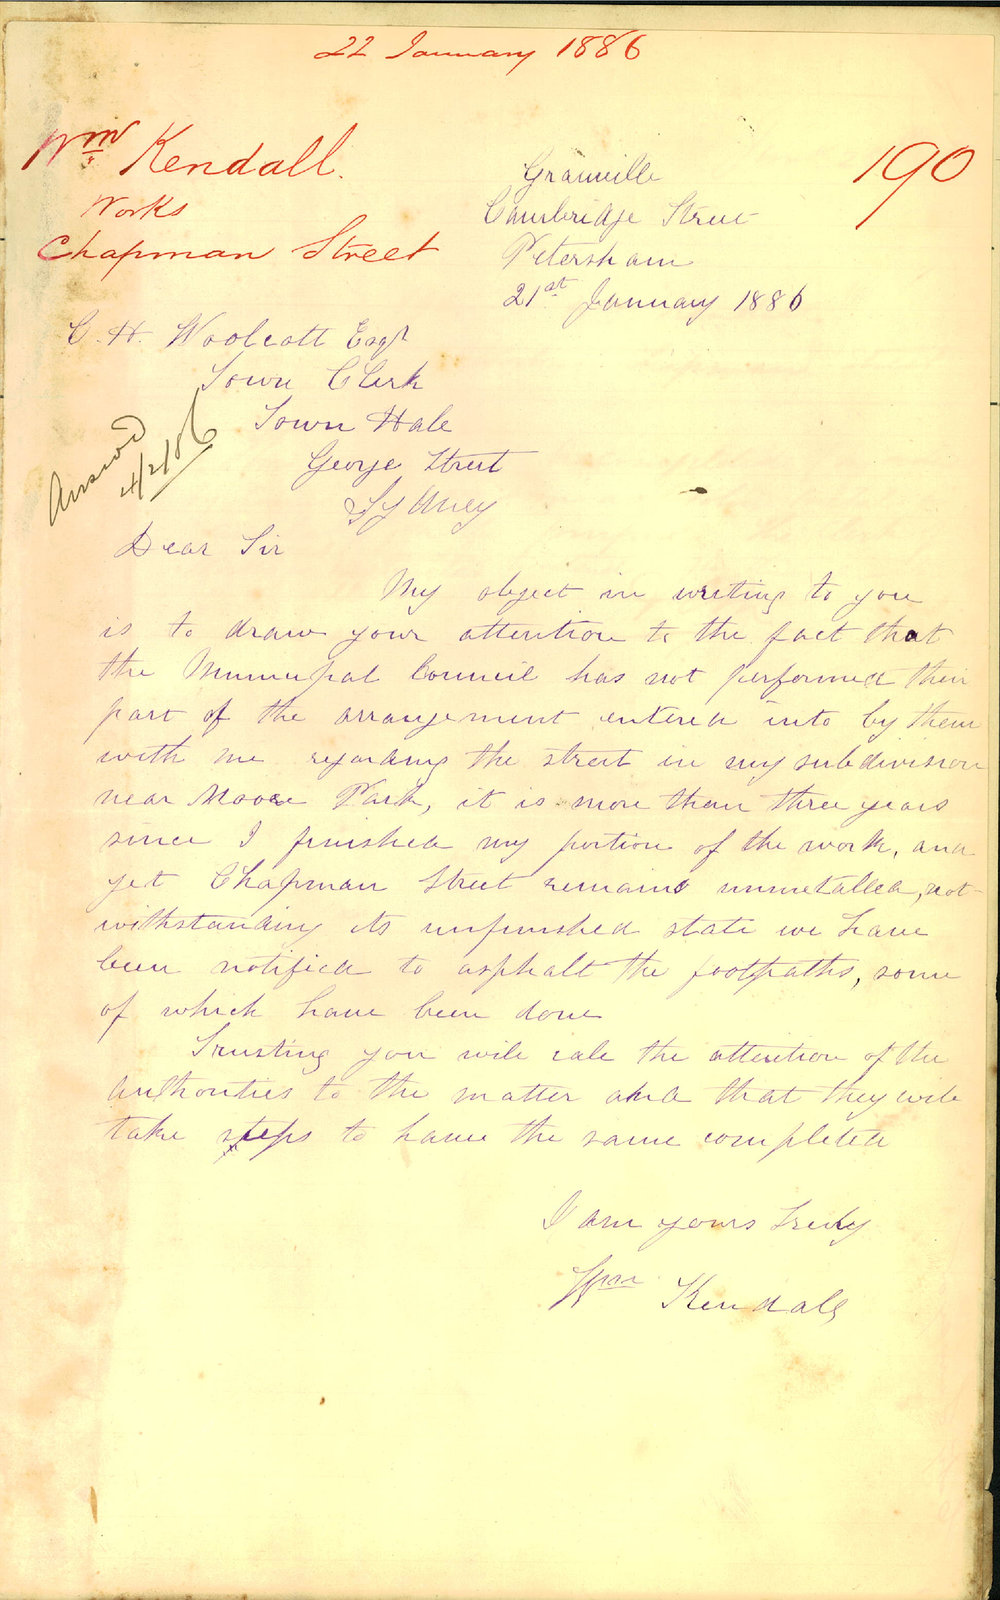 22 January 1886
Wm Kendall.
Works
Chapman Street
190
Granville
Cambridge Street
Petersham
21st January 1886
C. H. Woolcott Esqr
Town Clerk
Town Hall
George Street
Sydney
Answd
4/2/86
Dear Sir
My object in writing to you
is to draw your attention to the fact that
the Municipal Council has not performed their
part of the arrangement entered into by them
with me regarding the street in my subdivision
near Moore Park, it is more than three years
since I finished my portion of the work, and
yet Chapman Street remains unmetalled, not-
withstanding its unfinished state we have
been notified to asphalt the footpaths, some
of which have been done
Trusting you will call the attention of the
authorities to the matter and that they will
take steps to have the same completed
I am yours truly
Wm Kendall